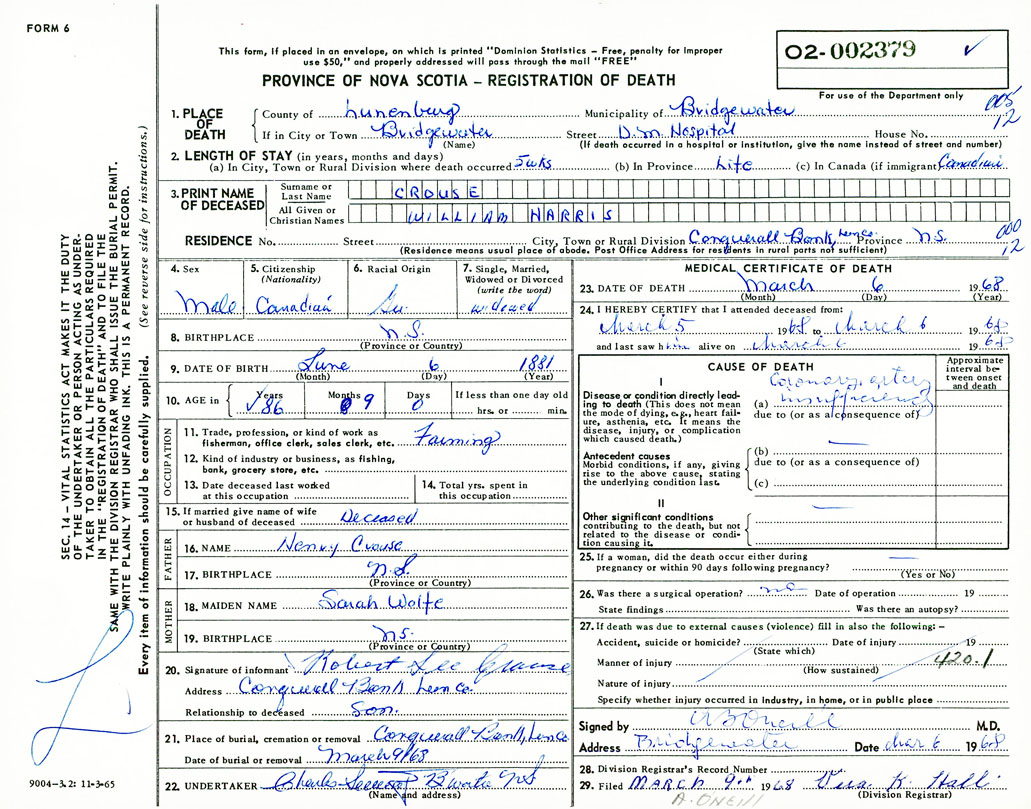 FORM 6
This form, if placed in an envelope, on which is printed "Dominion Statistics – Free, penalty for improper
use $50," and properly addressed will pass through the mail "FREE"
PROVINCE OF NOVA SCOTIA – REGISTRATION OF DEATH
02-002379 ✓
For use of the Department only
005
12
1. PLACE OF DEATH
County of Lunenburg Municipality of Bridgewater
If in City or Town Bridgewater Street D.M. Hospital House No.
(Name) (If death occurred in a hospital or institution, give the name instead of street and number)
2. LENGTH OF STAY (in years, months and days)
(a) In City, Town or Rural Division where death occurred 5 wks (b) In Province Life (c) In Canada (if immigrant) Canadian
3. PRINT NAME OF DECEASED
Surname or Last Name CROUSE
All Given or Christian Names WILLIAM HARRIS
RESIDENCE No. Street City, Town or Rural Division Conquerall Bank Lun Co. Province N.S.
(Residence means usual place of abode. Post Office Address for residents in rural parts not sufficient)
000
12
4. Sex
Male
5. Citizenship (Nationality)
Canadian
6. Racial Origin
7. Single, Married, Widowed or Divorced (write the word)
widowed
8. BIRTHPLACE N.S.
(Province or Country)
9. DATE OF BIRTH June 6 1881
(Month) (Day) (Year)
10. AGE in Years 86 Months 9 Days 0
If less than one day old
hrs. or min.
OCCUPATION
11. Trade, profession, or kind of work as
fisherman, office clerk, sales clerk, etc. Farming
12. Kind of industry or business, as fishing,
bank, grocery store, etc.
13. Date deceased last worked
at this occupation
14. Total yrs. spent in
this occupation
15. If married give name of wife
or husband of deceased Deceased
FATHER
16. NAME Henry Crouse
17. BIRTHPLACE N.S.
(Province or Country)
MOTHER
18. MAIDEN NAME Sarah Wolfe
19. BIRTHPLACE N.S.
(Province or Country)
20. Signature of informant Robert Lee Crouse
Address Conquerall Bank Lun Co.
Relationship to deceased Son.
21. Place of burial, cremation or removal Conquerall Bank, Lun Co
Date of burial or removal March 9/68
22. UNDERTAKER Charles B'water NS
(Name and address)
MEDICAL CERTIFICATE OF DEATH
23. DATE OF DEATH March 6 1968
(Month) (Day) (Year)
24. I HEREBY CERTIFY that I attended deceased from:
March 5 1968 to March 6 1968
and last saw him alive on March 6 1968
CAUSE OF DEATH
Approximate interval between onset and death
I
Disease or condition directly leading
to death (This does not mean
the mode of dying, e.g., heart failure,
asthenia, etc. It means the
disease, injury, or complication
which caused death.)
(a) Coronary artery insufficiency
due to (or as a consequence of)
Antecedent causes
Morbid conditions, if any, giving
rise to the above cause, stating
the underlying condition last.
(b)
due to (or as a consequence of)
(c)
II
Other significant conditions
contributing to the death, but not
related to the disease or condition
causing it.
25. If a woman, did the death occur either during
pregnancy or within 90 days following pregnancy?
(Yes or No)
26. Was there a surgical operation? no Date of operation 19
State findings Was there an autopsy?
27. If death was due to external causes (violence) fill in also the following: –
Accident, suicide or homicide? Date of injury 19
(State which)
Manner of injury 420.1
(How sustained)
Nature of injury
Specify whether injury occurred in industry, in home, or in public place
Signed by AB O'Neill M.D.
Address Bridgewater Date Mar 6 1968
28. Division Registrar's Record Number
29. Filed MARCH 9th 1968 Vera K. Hall
(Division Registrar)
A. ONEILL
SEC. 14 – VITAL STATISTICS ACT MAKES IT THE DUTY
OF THE UNDERTAKER OR PERSON ACTING AS UNDERTAKER
TO OBTAIN ALL THE PARTICULARS REQUIRED
IN THE "REGISTRATION OF DEATH" AND TO FILE THE
SAME WITH THE DIVISION REGISTRAR WHO SHALL ISSUE THE BURIAL PERMIT.
WRITE PLAINLY WITH UNFADING INK. THIS IS A PERMANENT RECORD.
Every item of information should be carefully supplied. (See reverse side for instructions.)
9004–3.2: 11-3-65